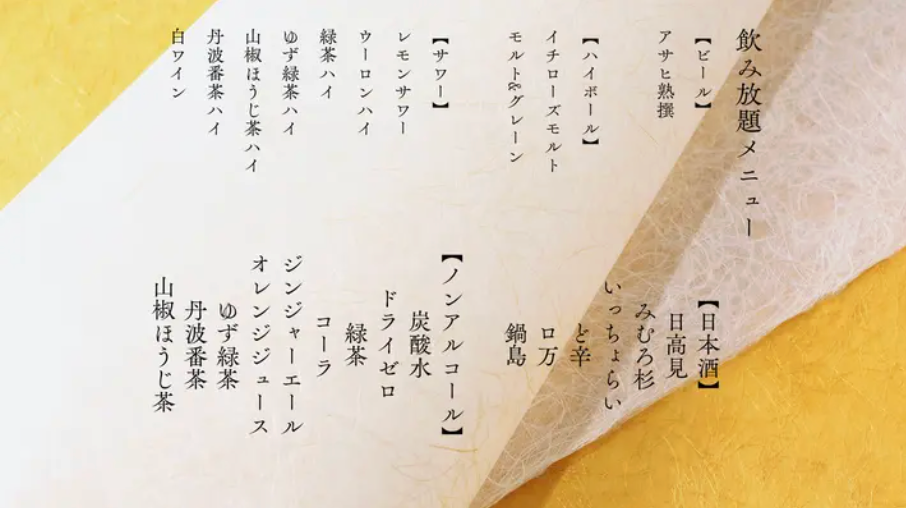 飲み放題メニュー
【ビール】
アサヒ熟撰
【ハイボール】
イチローズモルト
モルト&グレーン
【サワー】
レモンサワー
ウーロンハイ
緑茶ハイ
ゆず緑茶ハイ
山椒ほうじ茶ハイ
丹波番茶ハイ
白ワイン
【日本酒】
日高見
みむろ杉
いっちょらい
と辛
ロ万
鍋島
【ノンアルコール】
炭酸水
ドライゼロ
緑茶
コーラ
ジンジャーエール
オレンジジュース
ゆず緑茶
丹波番茶
山椒ほうじ茶